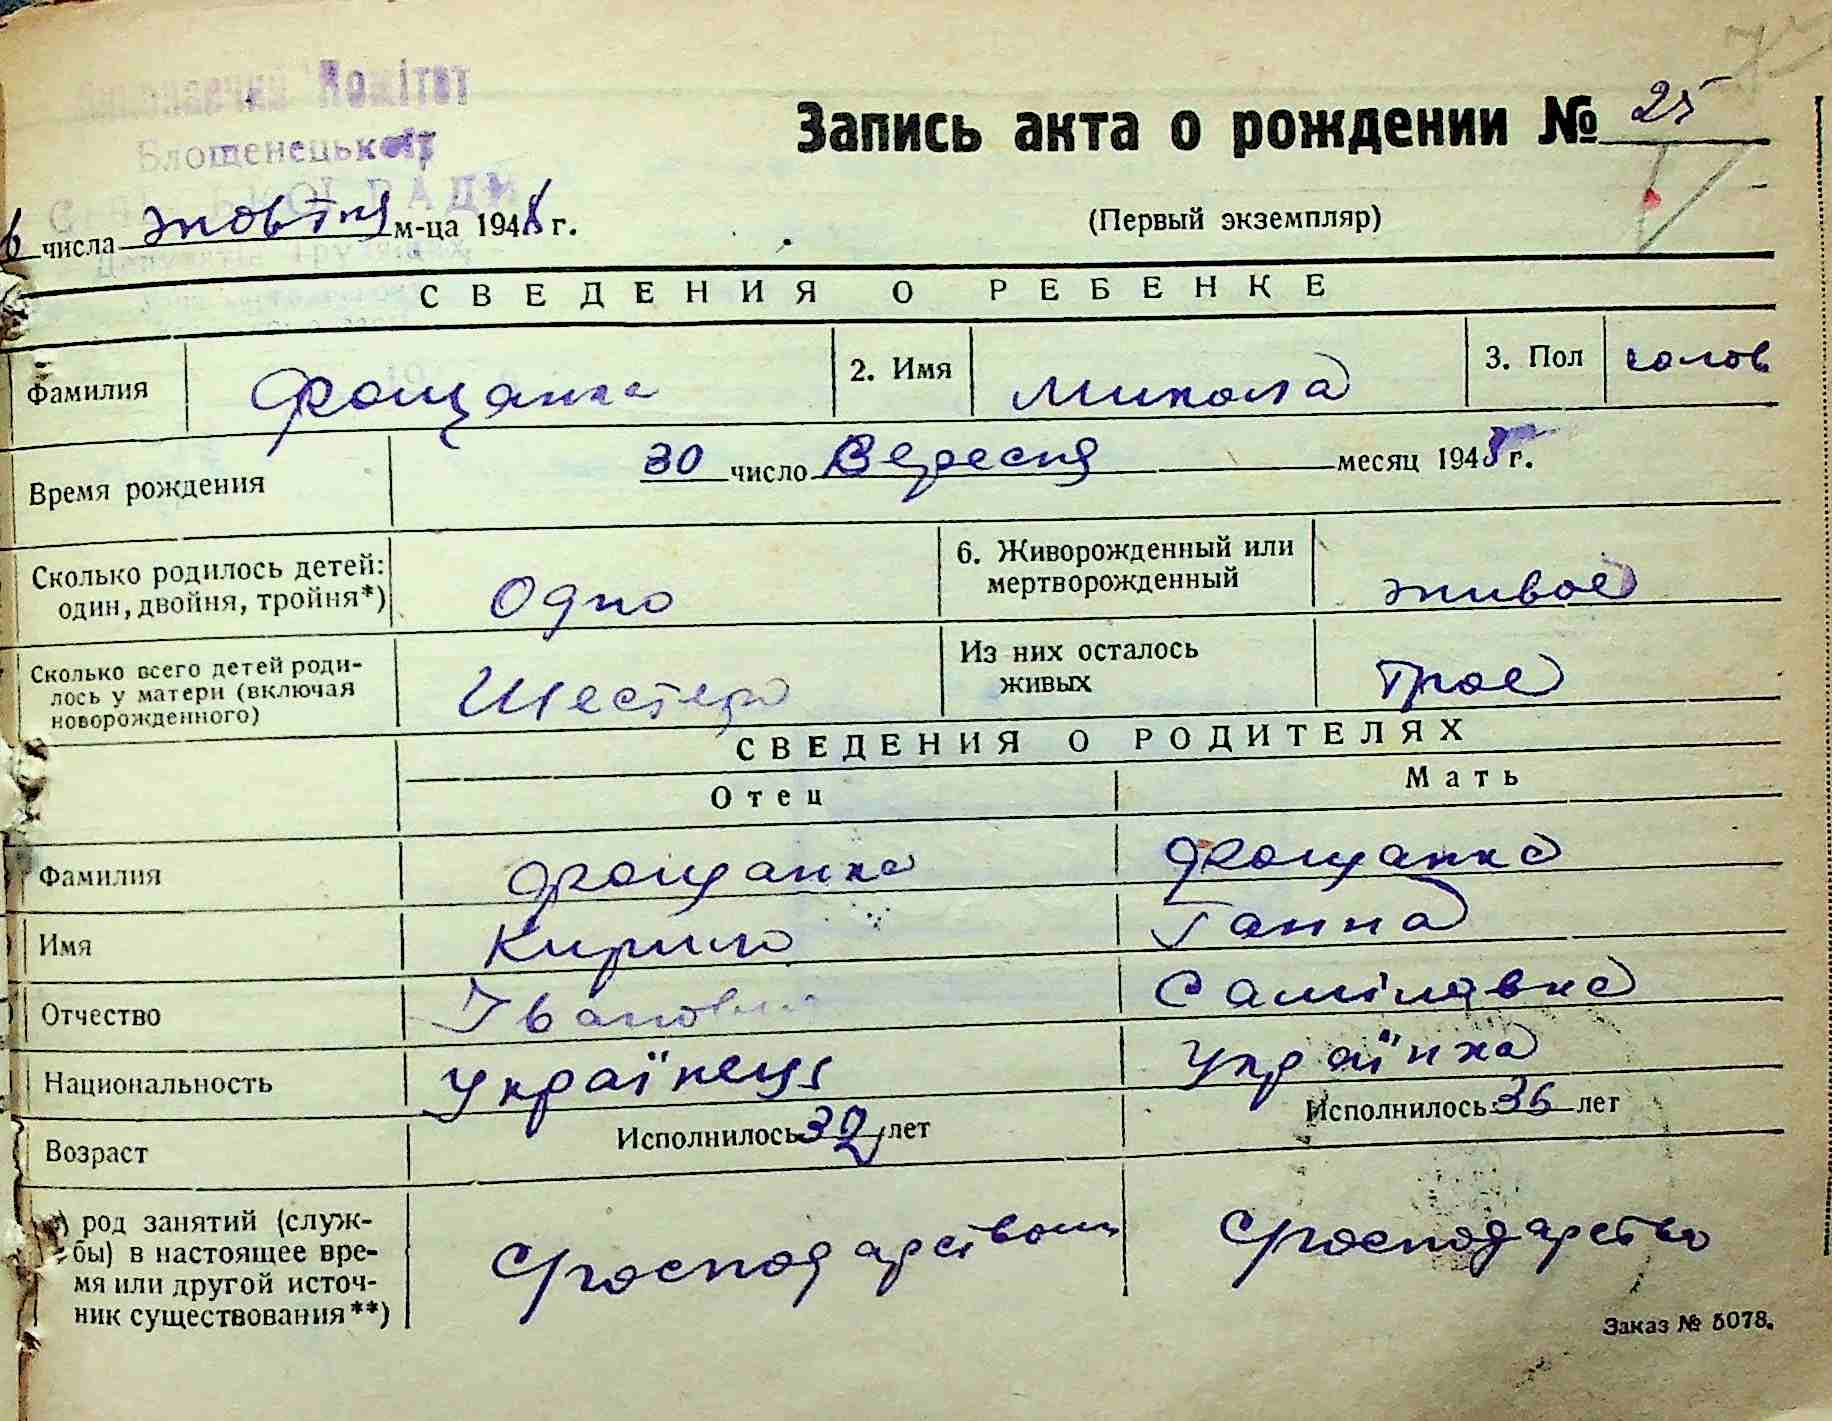 Комітет
Блощенецької
РАДИ
Запись акта о рождении № 25
6 числа жовтня м-ца 1948 г.
(Первый экземпляр)
СВЕДЕНИЯ О РЕБЕНКЕ
Фамилия Фрощанка 2. Имя Микола 3. Пол
Время рождения 30 число Вересня месяц 1948 г.
Сколько родилось детей: один, двойня, тройня*) Одно 6. Живорожденный или мертворожденный живое
Сколько всего детей родилось у матери (включая новорожденного) Шестеро Из них осталось живых Трое
СВЕДЕНИЯ О РОДИТЕЛЯХ
Отец Мать
Фамилия Фрощанка Фрощанка
Имя Кирило Ганна
Отчество Іванович Самілявна
Национальность Українець Українка
Возраст Исполнилось 39 лет Исполнилось 36 лет
род занятий (служ-
бы) в настоящее вре-
мя или другой источ-
ник существования**)
Заказ № 5078.